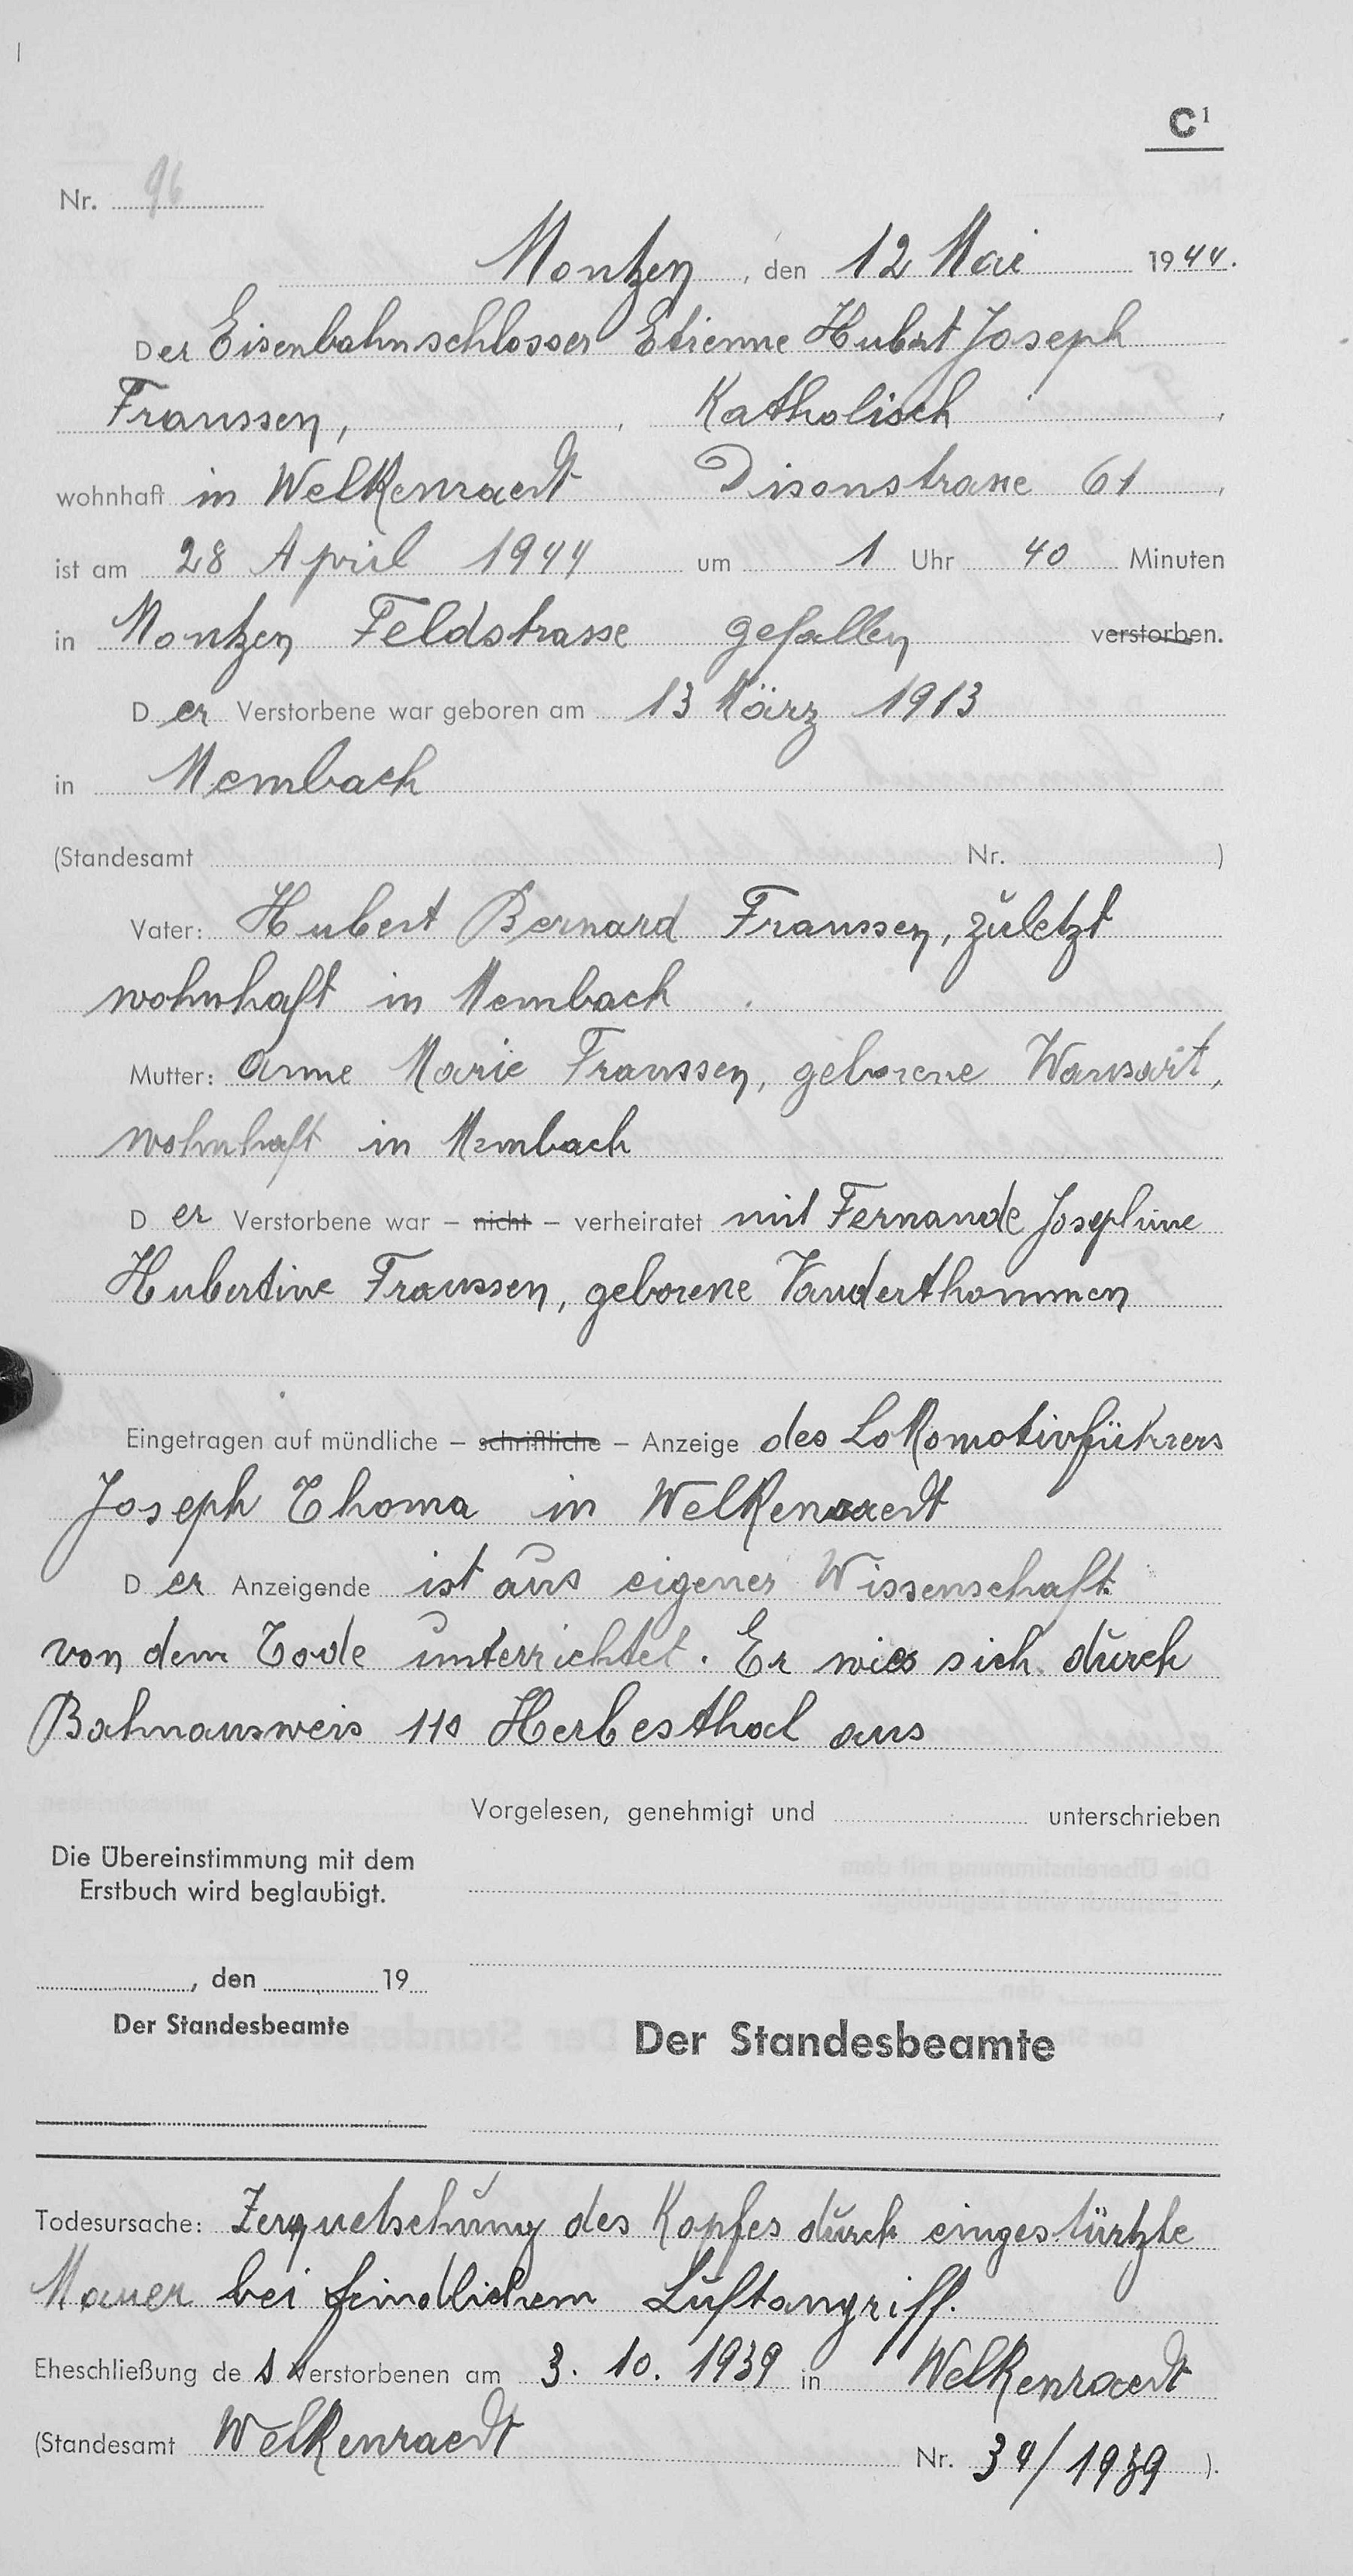 C1
Nr. 96
Montzen, den 12 Mai 1944.
Der Eisenbahnschlosser Etienne Hubert Joseph
Franssen, Katholisch,
wohnhaft in Welkenraedt Disonstrasse 61,
ist am 28 April 1944 um 1 Uhr 40 Minuten
in Montzen Feldstrasse gefallen verstorben.
Der Verstorbene war geboren am 13 März 1913
in Membach
(Standesamt Nr. )
Vater: Hubert Bernard Franssen, zuletzt
wohnhaft in Membach.
Mutter: Anne Marie Franssen, geborene Wansart,
wohnhaft in Membach
Der Verstorbene war – nicht – verheiratet mit Fernande Josephine
Hubertine Franssen, geborene Vanderthommen
Eingetragen auf mündliche – schriftliche – Anzeige des Lokomotivführers
Joseph Thoma in Welkenraedt
Der Anzeigende ist aus eigener Wissenschaft
von dem Tode unterrichtet. Er wies sich durch
Bahnausweis 110 Herbesthal aus
Vorgelesen, genehmigt und unterschrieben
Die Übereinstimmung mit dem
Erstbuch wird beglaubigt.
, den 19
Der Standesbeamte
Der Standesbeamte
Todesursache: Zerquetschung des Kopfes durch eingestürtzte
Mauer bei feindlichem Luftangriff.
Eheschließung des Verstorbenen am 3. 10. 1939 in Welkenraedt
(Standesamt Welkenraedt Nr. 34/1939).